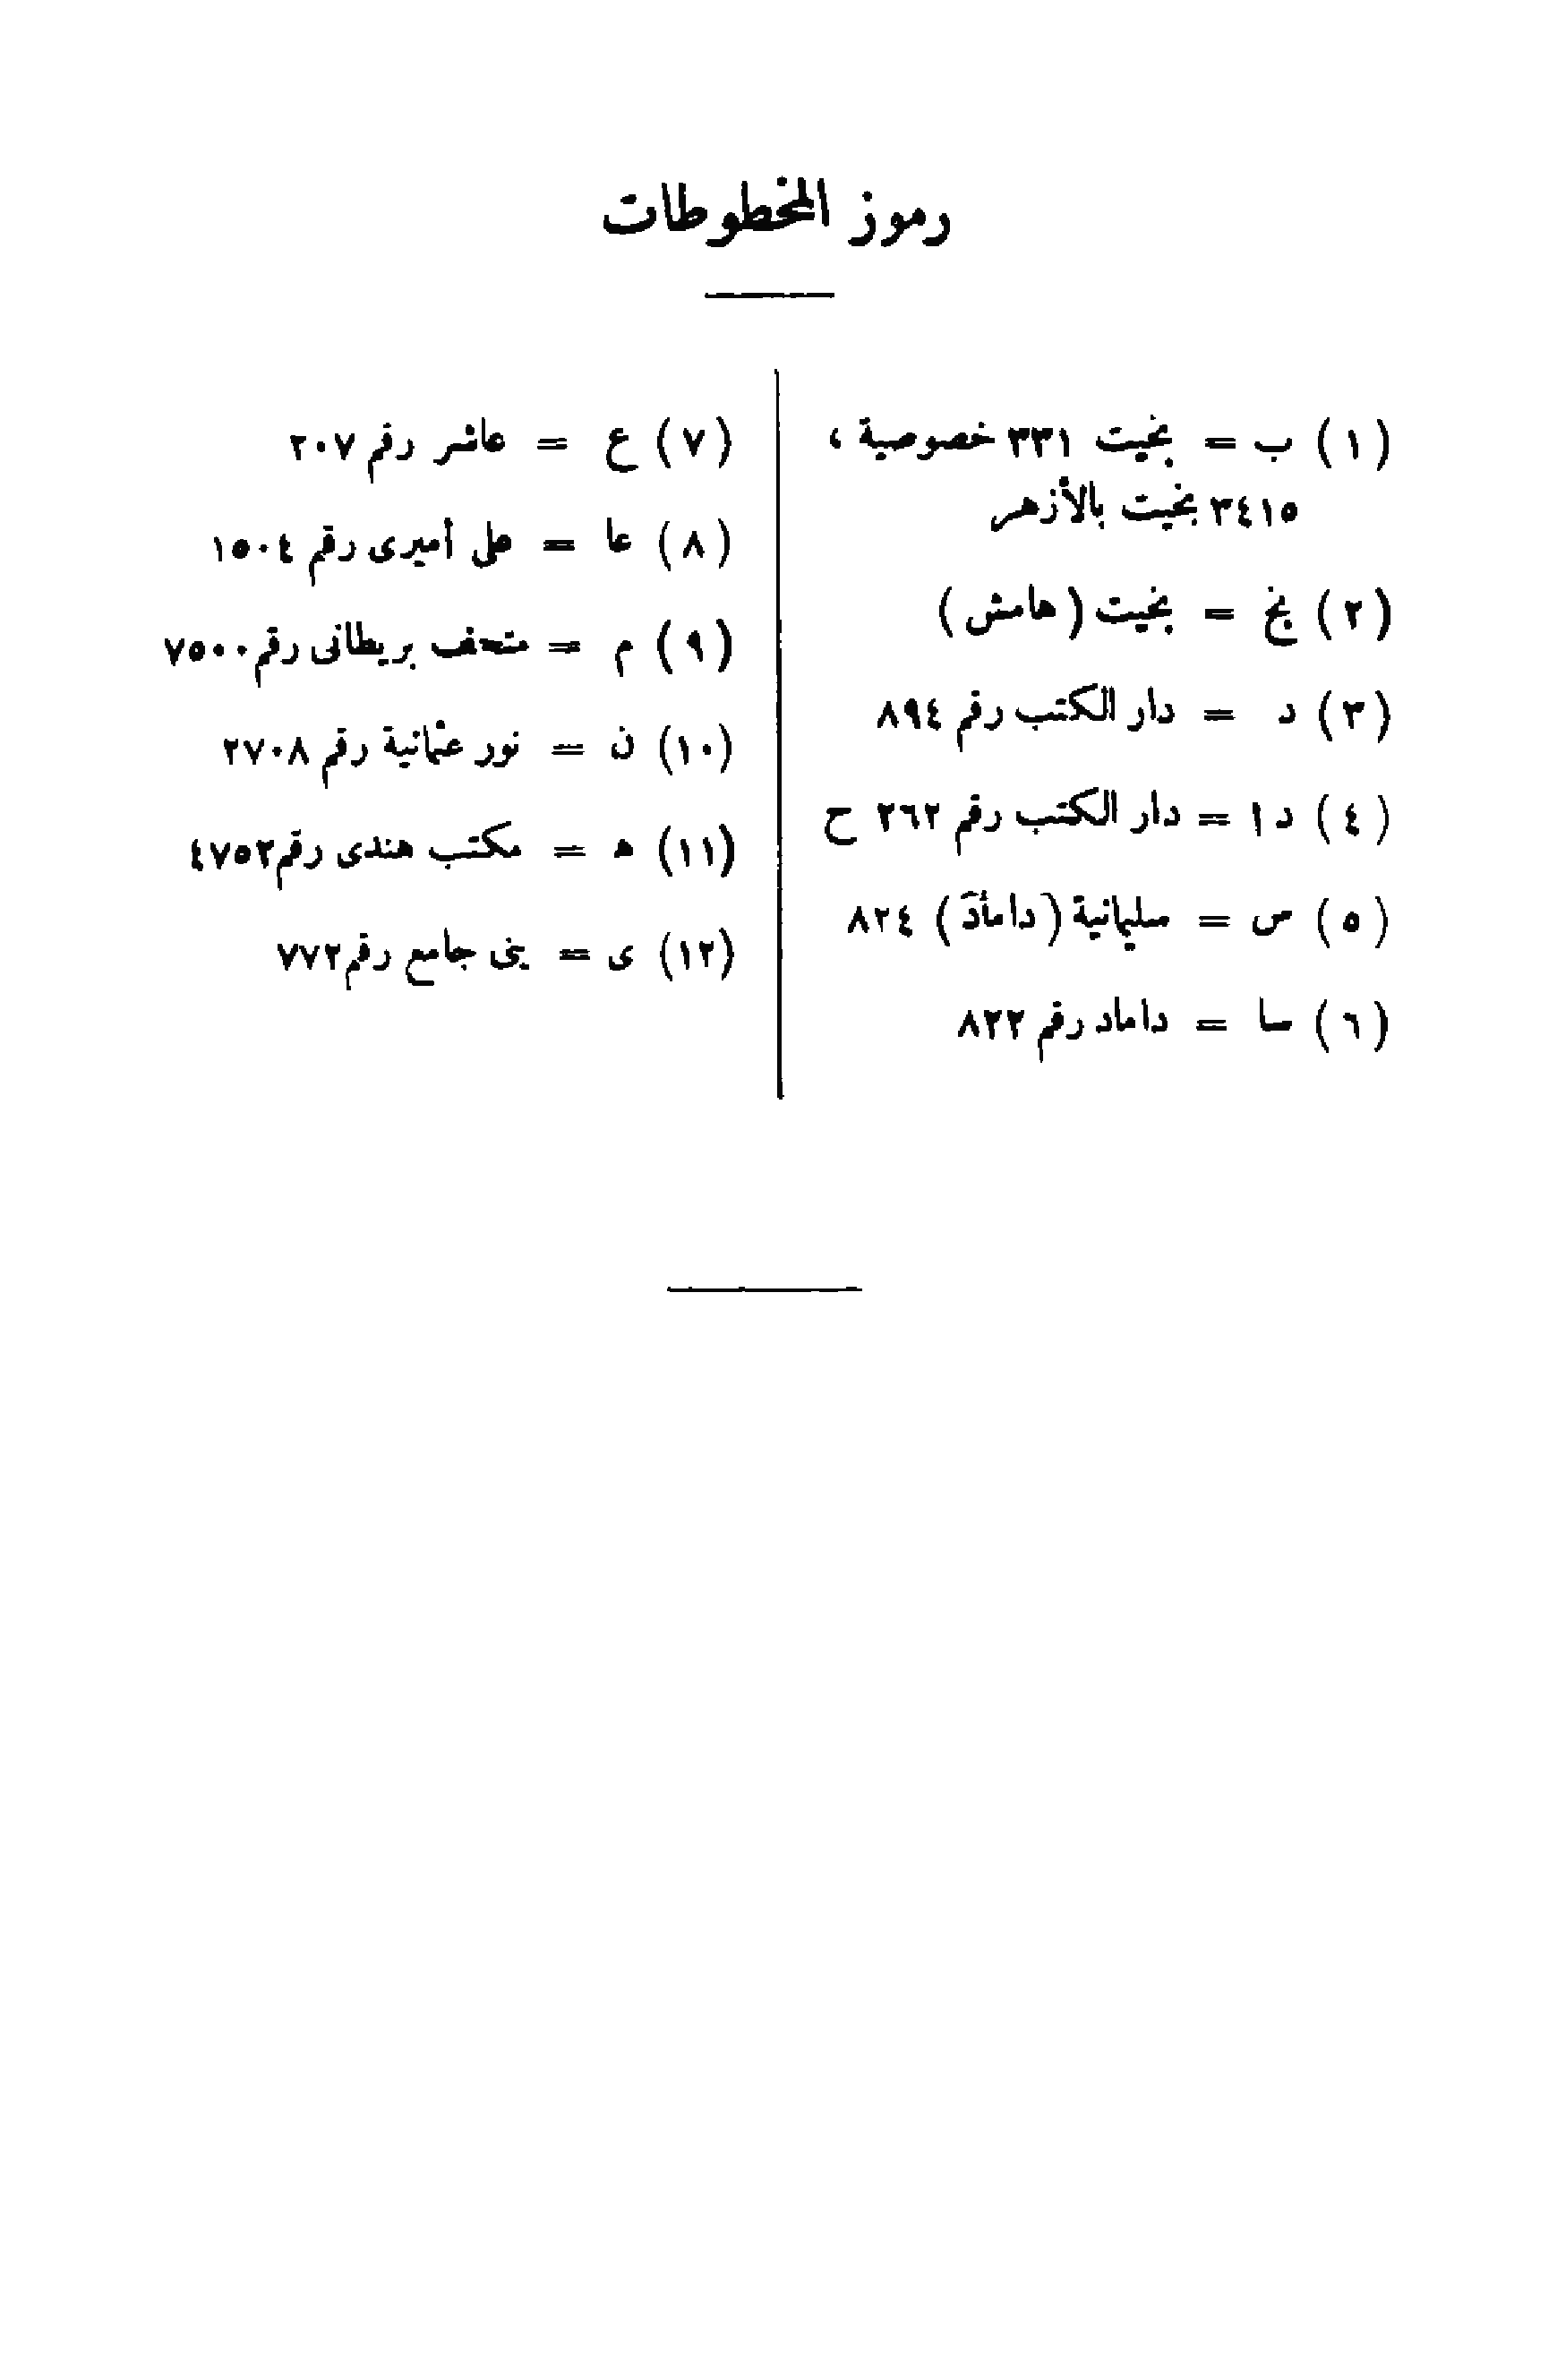 رموز المخطوطات
(١) ب = بخيت ٣٣١ خصوصية ،
٣٤١٥ بخيت بالأزهر
(٢) بخ = بخيت (هامش)
(٣) د = دار الكتب رقم ٨٩٤
(٤) دا = دار الكتب رقم ٢٦٢ ح
(٥) س = سليمانية (دامأد) ٨٢٤
(٦) سا = داماد رقم ٨٢٢
(٧) ع = عاشر رقم ٢٠٧
(٨) عا = على أميرى رقم ١٥٠٤
(٩) م = متحف بريطانى رقم ٧٥٠٠
(١٠) ن = نور عثمانية رقم ٢٧٠٨
(١١) ه = مكتب هندى رقم ٤٧٥٢
(١٢) ى = ينى جامع رقم ٧٧٢